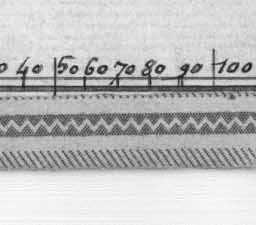 0 40 50 60 70 80 90 100